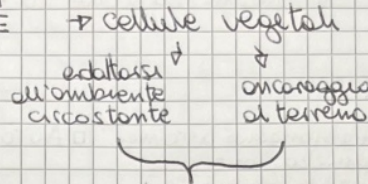 → cellule vegetali
adattarsi
all'ambiente
circostante
ancoraggio
al terreno